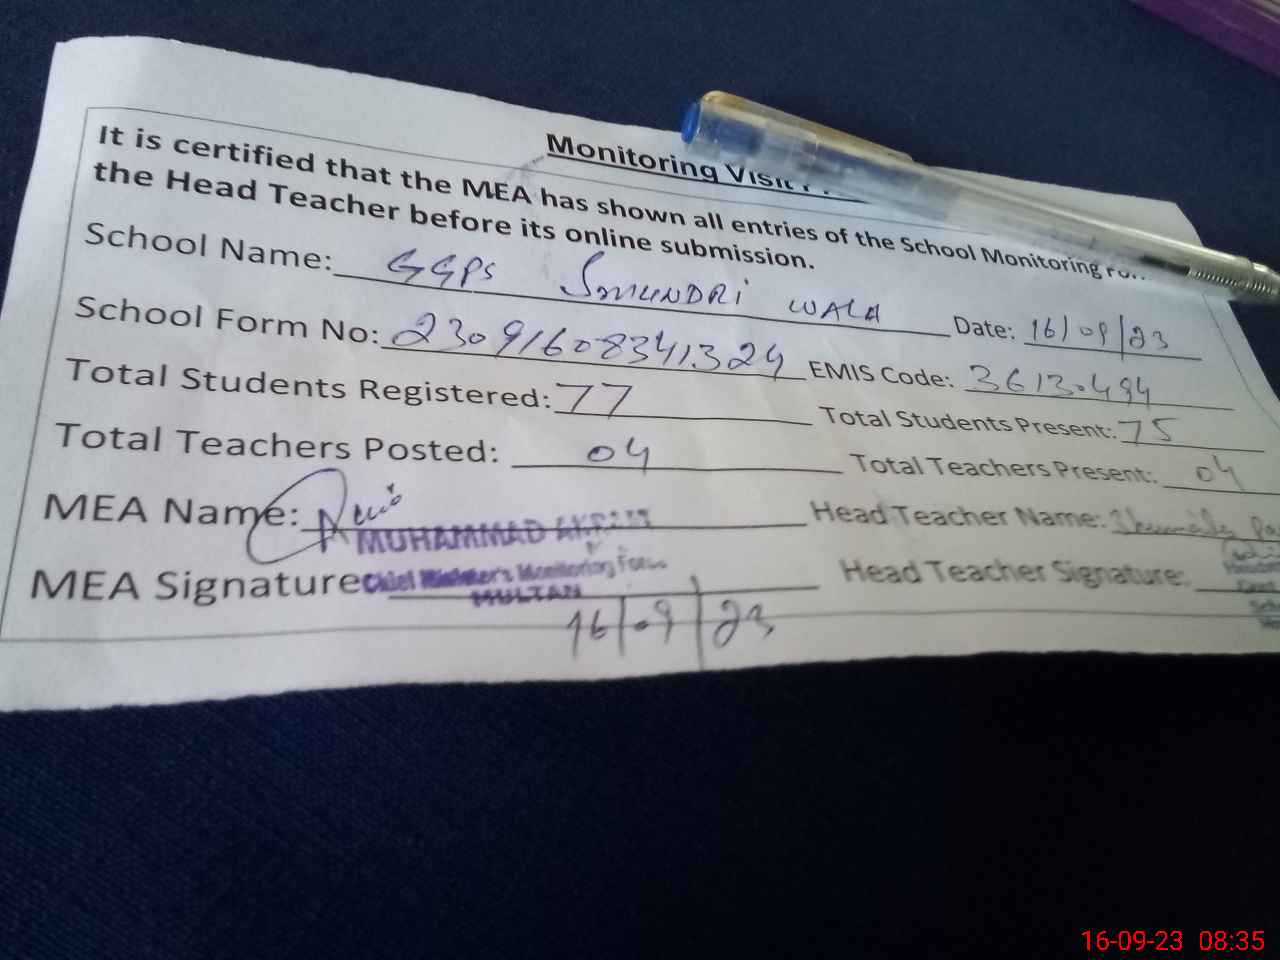 Monitoring Visit
It is certified that the MEA has shown all entries of the School Monitoring
the Head Teacher before its online submission.
School Name: GGPS SMUNDRI WALA Date: 16/09/23
School Form No: 23091608341324 EMIS Code: 36130494
Total Students Registered: 77 Total Students Present: 75
Total Teachers Posted: 04 Total Teachers Present: 04
MEA Name: Head Teacher Name:
MUHAMMAD AKRAM
MEA Signature Head Teacher Signature:
Chief Minister's Monitoring Force
MULTAN
16/09/23
16-09-23 08:35